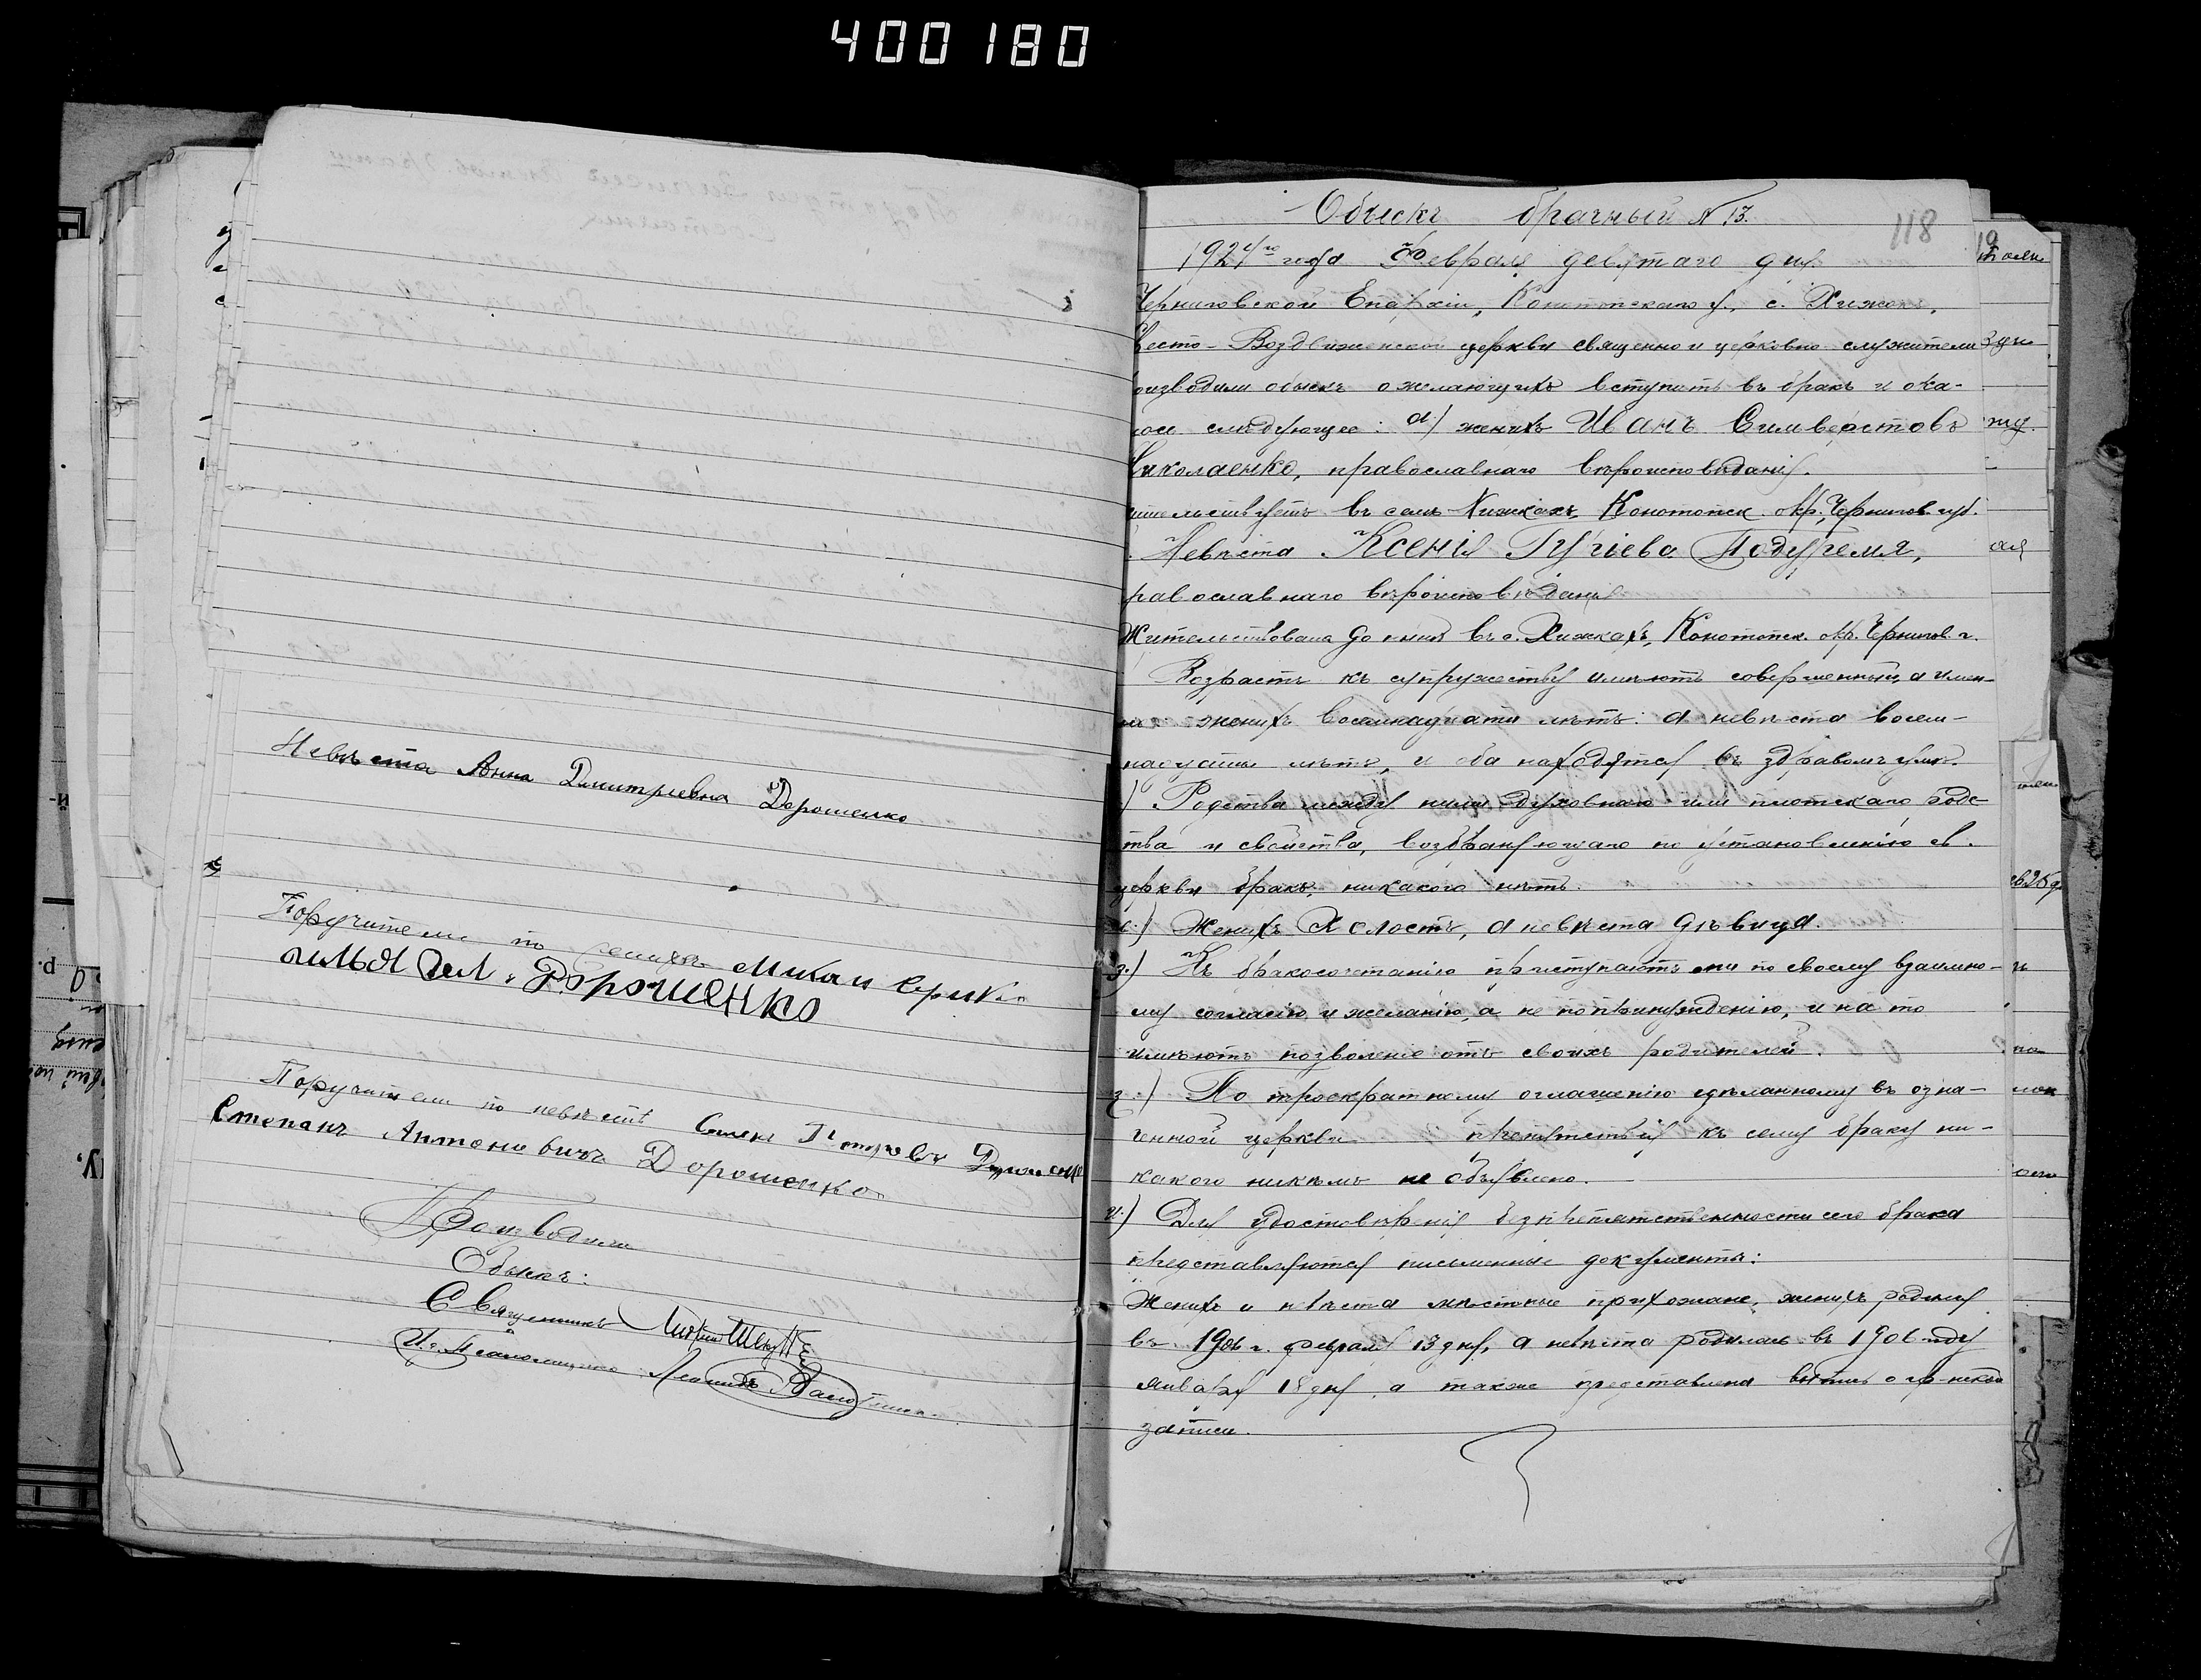 400180
Невѣста Анна Димитріевна Дорошенко
Поручители по
Дорошенко
Поручители по невѣстѣ
Степанъ Антоновичъ Дорошенко
Производили
Обыскъ:
Священникъ
118
Обыскъ брачный N 13.
1924го года Февраля девятаго дня
Черниговской Епархіи, Конотопскаго у., с. Хижокъ,
Воздвиженской церкви священно и церковно служители
оизводили обыскъ о желающихъ вступить въ бракъ и ока-
лось слѣдующее: а) женихъ Иванъ Сильверстовъ
Николаенко, православнаго вѣроисповѣданія.
ительствуетъ въ селѣ Хижкахъ, Конотопск. окр. Чернигов. губ.
Невѣста Ксенія Подугремя,
равославнаго вѣроисповѣданія
Жительствовала до нынѣ въ с. Хижкахъ, Конотопск. окр. Чернигов. г.
Возрастъ къ супружеству имѣютъ совершенный, а имен-
но женихъ восемнадцати лѣтъ: а невѣста восем-
надцати лѣтъ, и оба находятся въ здравомъ умѣ.
) Родства между ними духовнаго или плотскаго родс-
тва и свойства, возбраняющаго по установленію св.
церкви бракъ, никакого нѣтъ.
) Женихъ холостъ, а невѣста дѣвица.
) Къ бракосочетанію приступаютъ они по своему взаимно-
му согласію и желанію, а не по принужденію, и на то
имѣютъ позволеніе отъ своихъ родителей.
з.) По троекратному оглашенію сдѣланному въ озна-
ченной церкви препятствія къ сему браку ни-
какого никѣмъ не объявлено.
и.) Для удостовѣренія безпрепятственности сего брака
представляются письменные документы:
Женихъ и невѣста мѣстные прихожане, женихъ родился
въ 1906 г. февраля 13 дня, а невѣста родилась въ 1906 году
января 18 дня, а также представлена выпись о
записи.